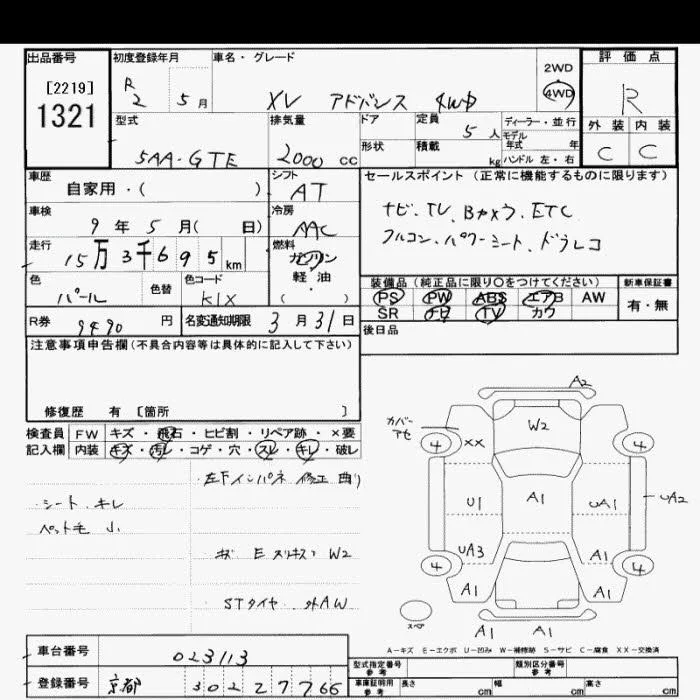 出品番号
[2219]
1321
初度登録年月
R 2 5月
車名・グレード
XV アドバンス 4WD
2WD
4WD
評価点
R
外装 内装
C C
型式
5AA-GTE
排気量
2000 cc
ドア
形状
定員 5人
積載 kg
ディーラー・並行
モデル年式 年
ハンドル 左・右
車歴
自家用・( )
シフト
AT
セールスポイント(正常に機能するものに限ります)
ナビ、TV、Bカメラ、ETC
フルコン、パワーシート、ドラレコ
車検
9年 5月( 日)
冷房
AAC
走行
15万3千695km
燃料
ガソリン
軽・油
( )
色
パール
色替
色コード
K1X
装備品(純正品に限り○をつけてください)
PS PW ABS エアB AW
SR ナビ TV カワ
新車保証書
有・無
R券
9490円
名変通知期限 3月31日
後日品
注意事項申告欄(不具合内容等は具体的に記入して下さい)
修復歴 有 [箇所 ]
検査員記入欄
FW キズ・飛石・ヒビ割・リペア跡・×要
内装 キズ・汚レ・コゲ・穴・スレ・キレ・破レ
シート、キレ
ペット毛 小
左下インパネ 修正 曲り
キズ E スリキズ W2
STタイヤ、外AW
A2
カバー
アセ
4 XX W2 4
U1 A1 UA1 UA2
UA3 A1
4 4
A1 A1
A1 A1
スペア
A-キズ E-エクボ U-凹み W-補修跡 S-サビ C-腐食 XX-交換済
車台番号
023113
登録番号
京都 302 27766
型式指定番号 参考
類別区分番号 参考
車庫証明用 参考
長さ cm 幅 cm 高さ cm